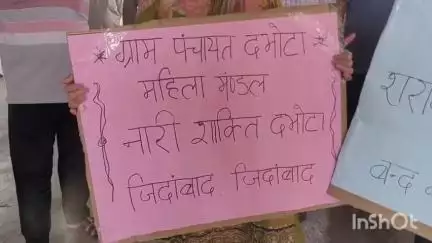 * ग्राम पंचायत दभोटा *
महिला मण्डल
नारी शक्ति दभोटा
जिंदाबाद जिंदाबाद
बन्द
InShOt